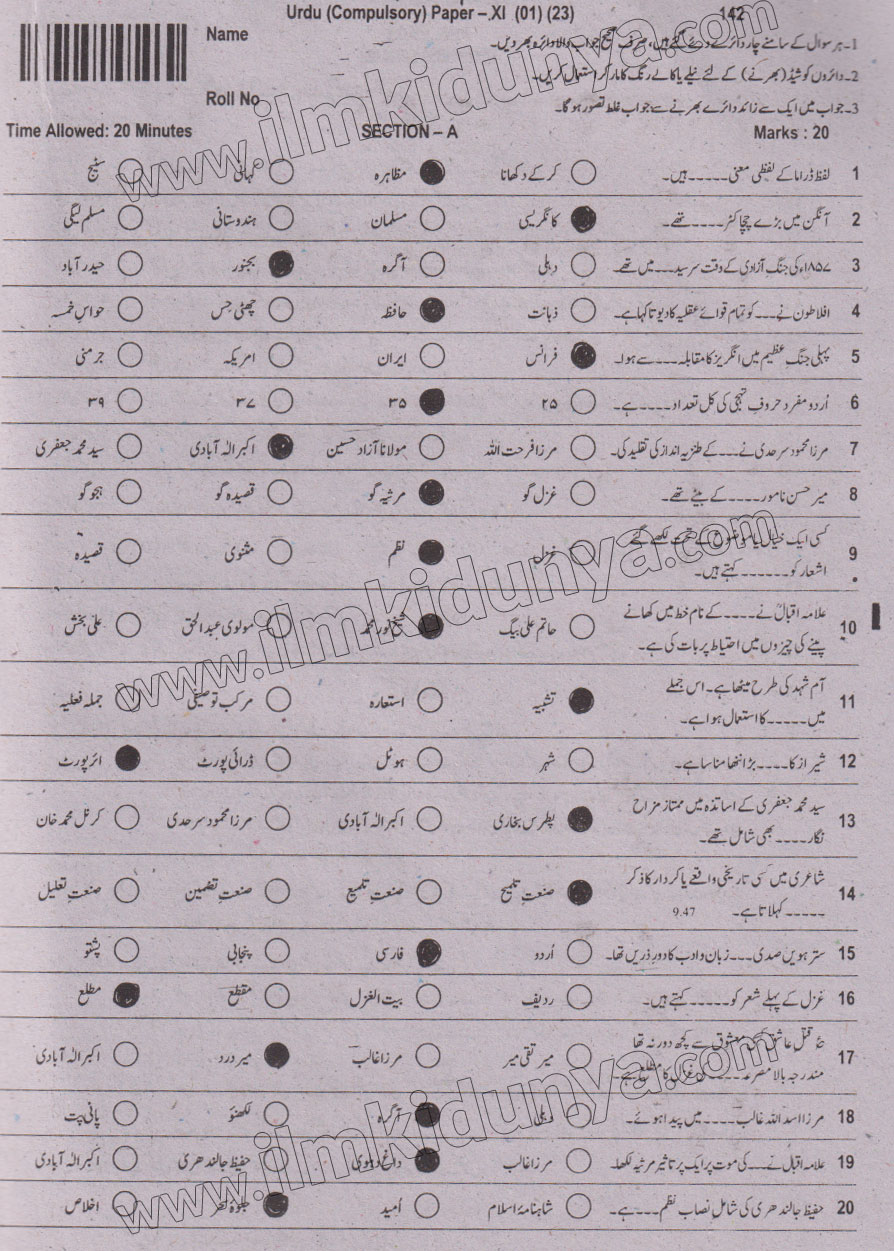 Urdu (Compulsory) Paper – XI (01) (23) 142
Name
1۔ ہر سوال کے سامنے چار دائرے دیے گئے ہیں، صرف صحیح جواب والا دائرہ بھر دیں۔
2۔ دائروں کو شیڈ (بھرنے) کے لئے نیلے یا کالے رنگ کا مارکر استعمال کریں۔
Roll No
3۔ جواب میں ایک سے زائد دائرے بھرنے سے جواب غلط تصور ہوگا۔
Time Allowed: 20 Minutes SECTION – A Marks : 20
1 لفظ ڈراما کے لفظی معنی ۔۔۔۔۔ ہیں۔ کر کے دکھانا مظاہرہ کہانی سٹیج
2 آنگن میں بڑے چچا کٹر ۔۔۔۔ تھے۔ کانگریسی مسلمان ہندوستانی مسلم لیگی
3 ۱۸۵۷ء کی جنگِ آزادی کے وقت سر سید ۔۔۔ میں تھے۔ دہلی آگرہ بجنور حیدر آباد
4 افلاطون نے ۔۔۔ کو تمام قوائے عقلیہ کا دیوتا کہا ہے۔ ذہانت حافظہ چھٹی حِس حواسِ خمسہ
5 پہلی جنگ عظیم میں انگریز کا مقابلہ ۔۔۔۔ سے ہوا۔ فرانس ایران امریکہ جرمنی
6 اُردو مفرد حروفِ تہجی کی کل تعداد ۔۔۔۔ ہے۔ ۲۵ ۳۵ ۳۷ ۳۹
7 مرزا محمود سرحدی نے ۔۔۔ کے طنزیہ انداز کی تقلید کی۔ مرزا فرحت اللہ مولانا آزاد حسین اکبر الٰہ آبادی سید محمد جعفری
8 میر حسن نامور ۔۔۔۔ کے بیٹے تھے۔ غزل گو مرثیہ گو قصیدہ گو ہجو گو
9 کسی ایک خیال یا موضوع کے تحت لکھے گئے
اشعار کو ۔۔۔۔۔۔ کہتے ہیں۔ غزل نظم مثنوی قصیدہ
10 علامہ اقبالؒ نے ۔۔۔۔ کے نام خط میں کھانے
پینے کی چیزوں میں احتیاط پر بات کی ہے۔ حاتم علی بیگ شیخ نور محمد مولوی عبدالحق علی بخش
11 آم شہد کی طرح میٹھا ہے۔ اس جملے
میں ۔۔۔۔۔ کا استعمال ہوا ہے۔ تشبیہ استعارہ مرکب توصیفی جملہ فعلیہ
12 شیراز کا ۔۔۔۔ بڑا ننھا منا سا ہے۔ شہر ہوٹل ڈرائی پورٹ ائرپورٹ
13 سید محمد جعفری کے اساتذہ میں ممتاز مزاح
نگار ۔۔۔۔ بھی شامل تھے۔ پطرس بخاری اکبر الٰہ آبادی مرزا محمود سرحدی کرنل محمد خان
14 شاعری میں کسی تاریخی واقعے یا کردار کا ذکر
۔۔۔۔۔ کہلاتا ہے۔ 9.47 صنعتِ تلمیح صنعتِ تلمیع صنعتِ تضمین صنعتِ تعلیل
15 سترھویں صدی ۔۔۔ زبان و ادب کا دورِ ذریں تھا۔ اُردو فارسی پنجابی پشتو
16 غزل کے پہلے شعر کو ۔۔۔۔۔ کہتے ہیں۔ ردیف بیت الغزل مقطع مطلع
17 ؏ قتلِ عاشق کسی معشوق سے کچھ دور نہ تھا
مندرجہ بالا مصرعہ ۔۔۔۔ کی غزل کا مطلع ہے۔ میر تقی میر مرزا غالب میر درد اکبر الٰہ آبادی
18 مرزا اسد اللہ غالب ۔۔۔۔ میں پیدا ہوئے۔ دہلی آگرہ لکھنؤ پانی پت
19 علامہ اقبال نے ۔۔۔ کی موت پر ایک پُر تاثیر مرثیہ لکھا۔ مرزا غالب داغ دہلوی حفیظ جالندھری اکبر الٰہ آبادی
20 حفیظ جالندھری کی شاملِ نصاب نظم ۔۔۔ ہے۔ شاہنامۂ اسلام اُمید جلوۂ سحر اخلاص
www.ilmkidunya.com
www.ilmkidunya.com
www.ilmkidunya.com